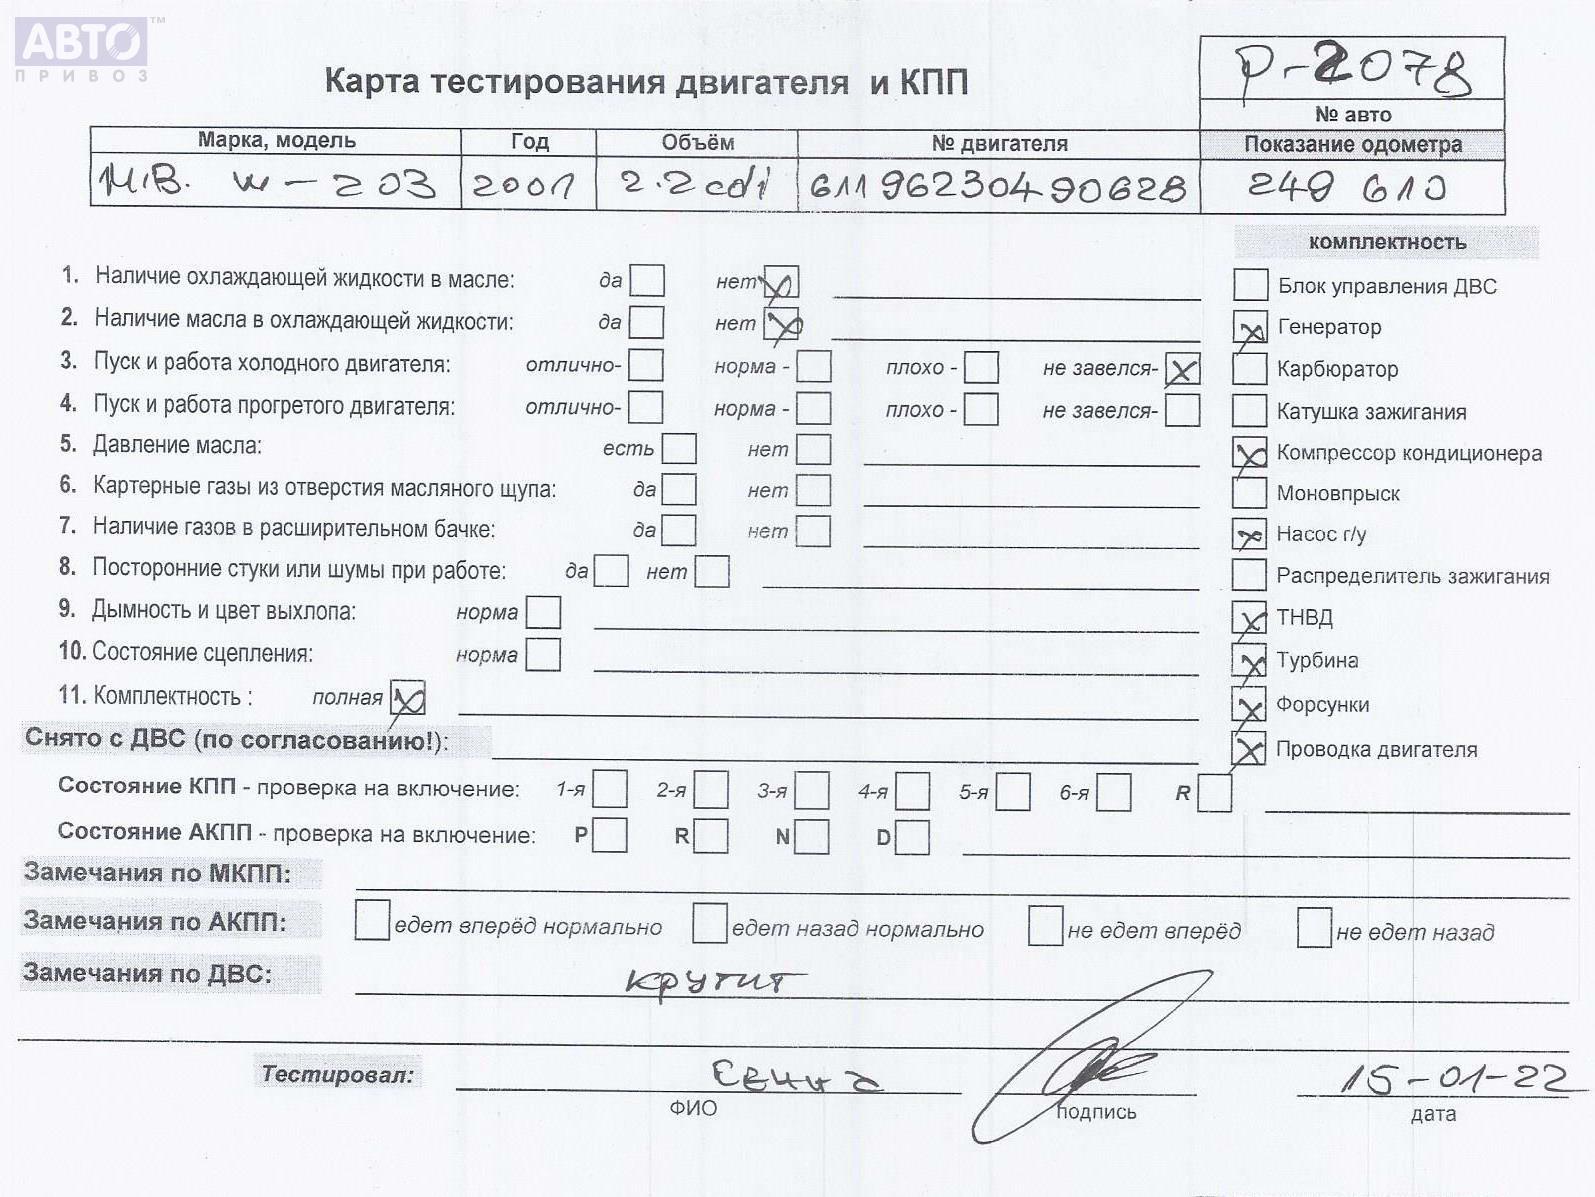 АВТО™
ПРИВОЗ
Р-2078
Карта тестирования двигателя и КПП
№ авто
Марка, модель Год Объём № двигателя Показание одометра
М.В. W-203 2001 2.2cdi 61196230490628 249 610
комплектность
1. Наличие охлаждающей жидкости в масле: да нет
Блок управления ДВС
2. Наличие масла в охлаждающей жидкости: да нет
Генератор
3. Пуск и работа холодного двигателя: отлично- норма - плохо - не завелся-
Карбюратор
4. Пуск и работа прогретого двигателя: отлично- норма - плохо - не завелся-
Катушка зажигания
5. Давление масла: есть нет
Компрессор кондиционера
6. Картерные газы из отверстия масляного щупа: да нет
Моновпрыск
7. Наличие газов в расширительном бачке: да нет
Насос г/у
8. Посторонние стуки или шумы при работе: да нет
Распределитель зажигания
9. Дымность и цвет выхлопа: норма
ТНВД
10. Состояние сцепления: норма
Турбина
11. Комплектность : полная
Форсунки
Снято с ДВС (по согласованию!):
Проводка двигателя
Состояние КПП - проверка на включение: 1-я 2-я 3-я 4-я 5-я 6-я R
Состояние АКПП - проверка на включение: P R N D
Замечания по МКПП:
Замечания по АКПП: едет вперёд нормально едет назад нормально не едет вперёд не едет назад
Замечания по ДВС: крутит
Тестировал: 15-01-22
ФИО подпись дата